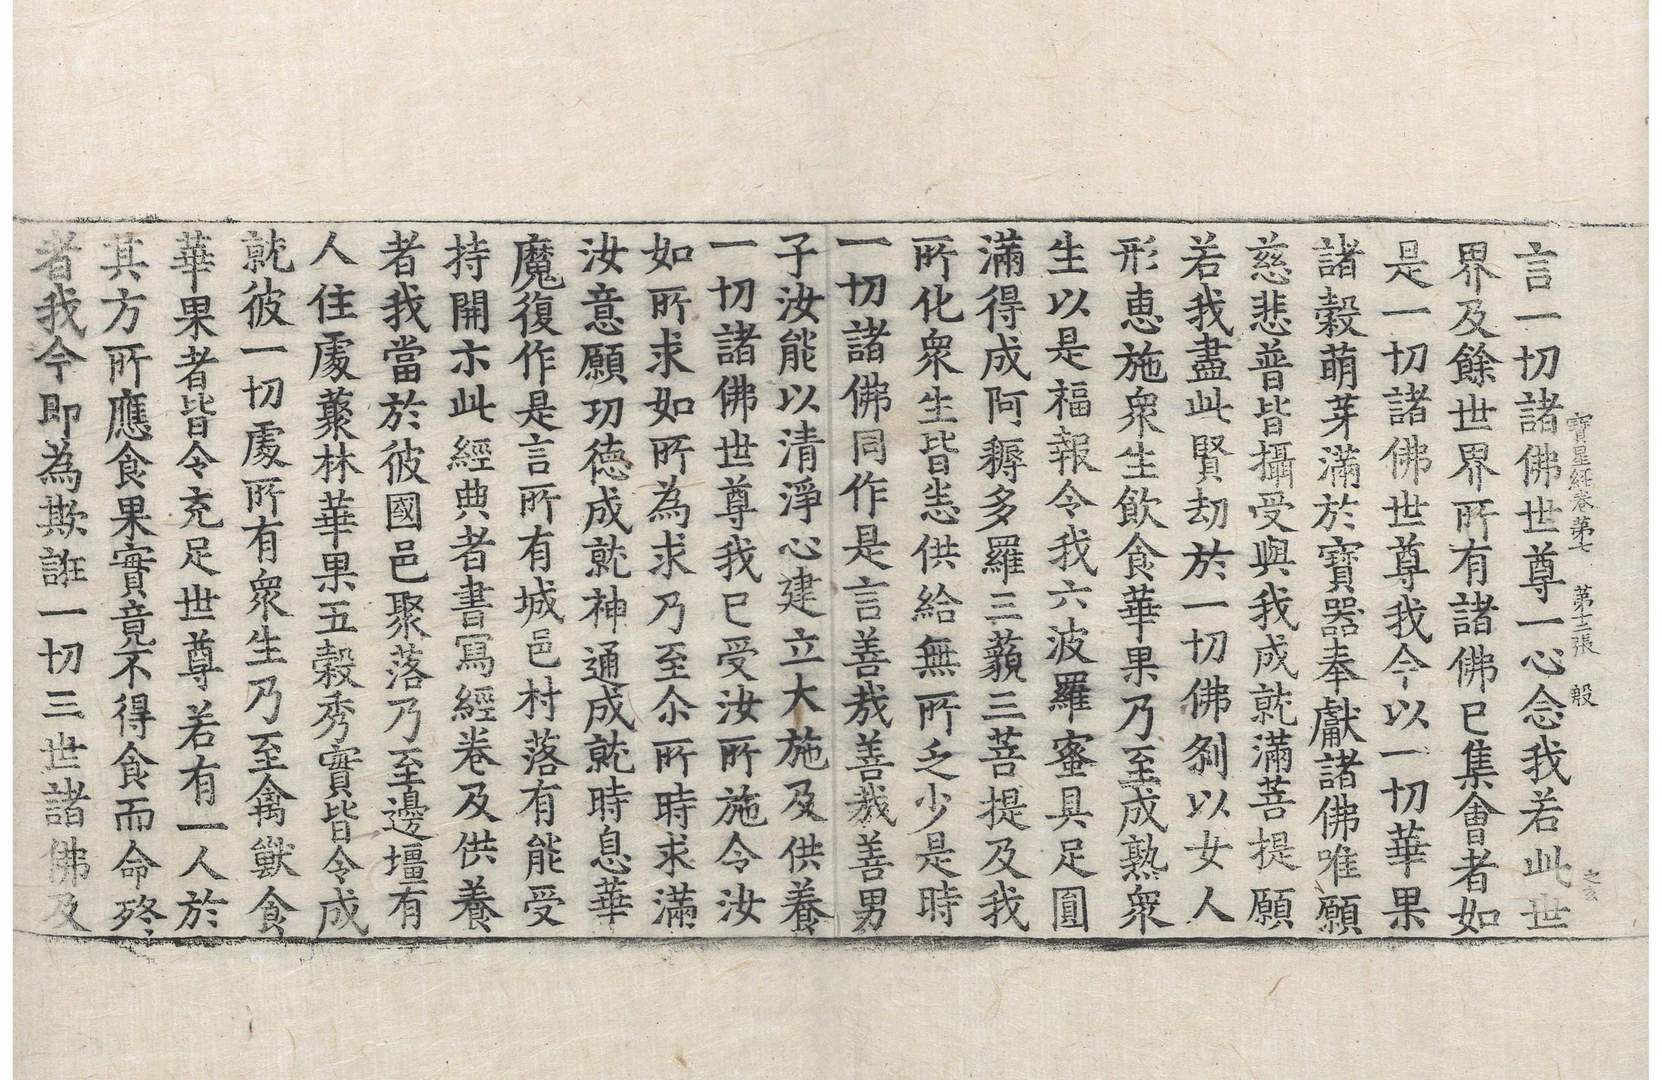 寶星經卷第七 第十二張 殷
言一切諸佛世尊一心念我若此世
界及餘世界所有諸佛已集會者如
是一切諸佛世尊我今以一切華果
諸穀萌芽滿於寶器奉獻諸佛唯願
慈悲普皆攝受與我成就滿菩提願
若我盡此賢劫於一切佛剎以女人
形惠施衆生飲食華果乃至成熟衆
生以是福報令我六波羅蜜具足圓
滿得成阿耨多羅三藐三菩提及我
所化衆生皆悉供給無所乏少是時
一切諸佛同作是言善哉善哉善男
子汝能以清淨心建立大施及供養
一切諸佛世尊我已受汝所施令汝
如所求如所為求乃至尒所時求滿
汝意願功德成就神通成就時息華
魔復作是言所有城邑村落有能受
持開示此經典者書寫經卷及供養
者我當於彼國邑聚落乃至邊壃有
人住處藂林華果五穀秀實皆令成
就彼一切處所有衆生乃至禽獸食
華果者皆令充足世尊若有一人於
其方所應食果實竟不得食而命終
者我今即為欺誑一切三世諸佛及